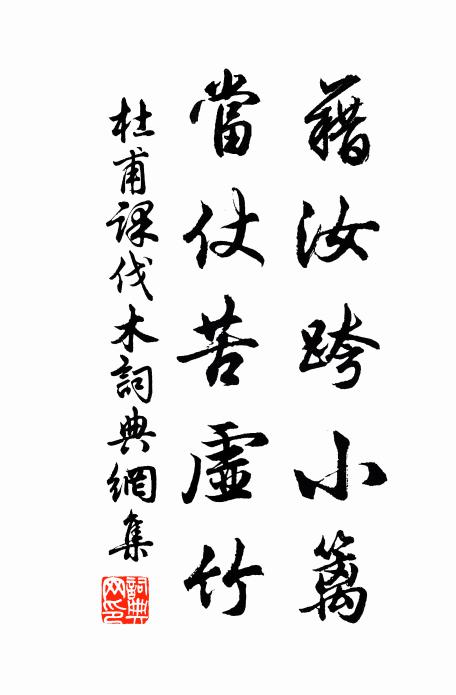 藉汝跨小籬
當仗苦虛竹
杜甫課伐木詞典網集
詞典网印